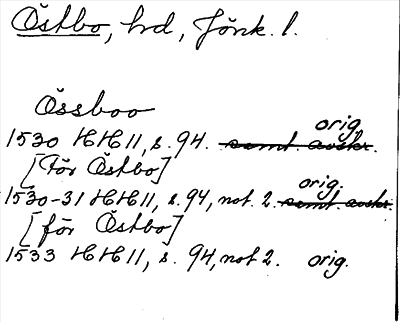 Östbo, hd, Jönk. l.
Össboo
orig.
1530 HH 11, s. 94. samt. avskr.
[för Östbo]
orig.
1530-31 HH 11, s. 94, not. 2. samt. avskr.
[för Östbo]
1533 HH 11, s. 94, not 2. orig.